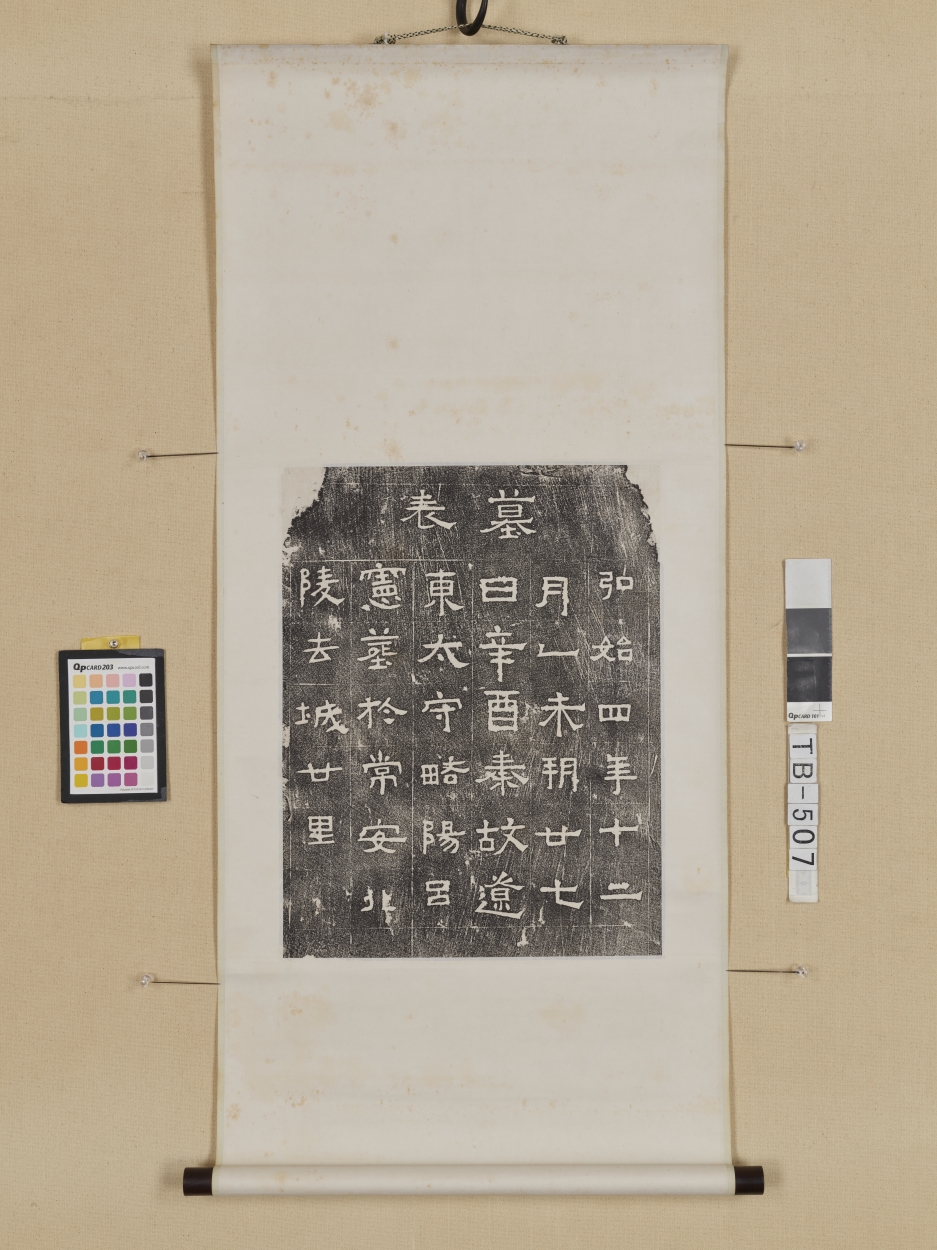 墓表
弘始四年十二
月乙未朔廿七
日辛酉秦故遼
東太守略陽呂
憲塟於常安北
陵去城廿里
QpCARD 203
QpCARD 101
TB-507